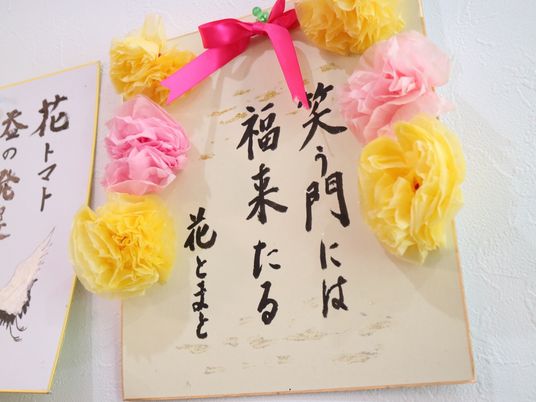 笑う門には
福来たる
花とまと
花トマト